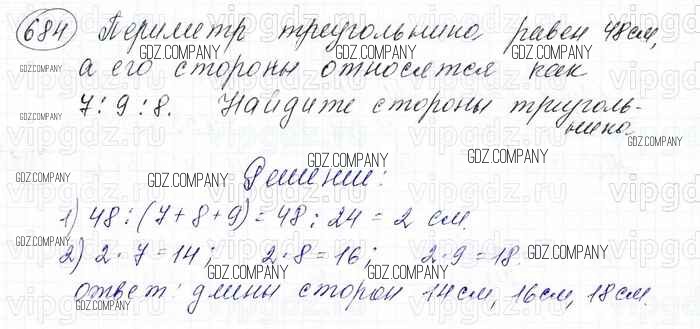 684 Периметр треугольника равен 48см,
а его стороны относятся как
7:9:8. Найдите стороны треуголь-
ника
Решение:
1) 48:(7+8+9)=48:24=2 см.
2) 2·7=14; 2·8=16; 2·9=18.
ответ: длины сторон 14см, 16см, 18см.
GDZ.COMPANY
vipgdz.ru